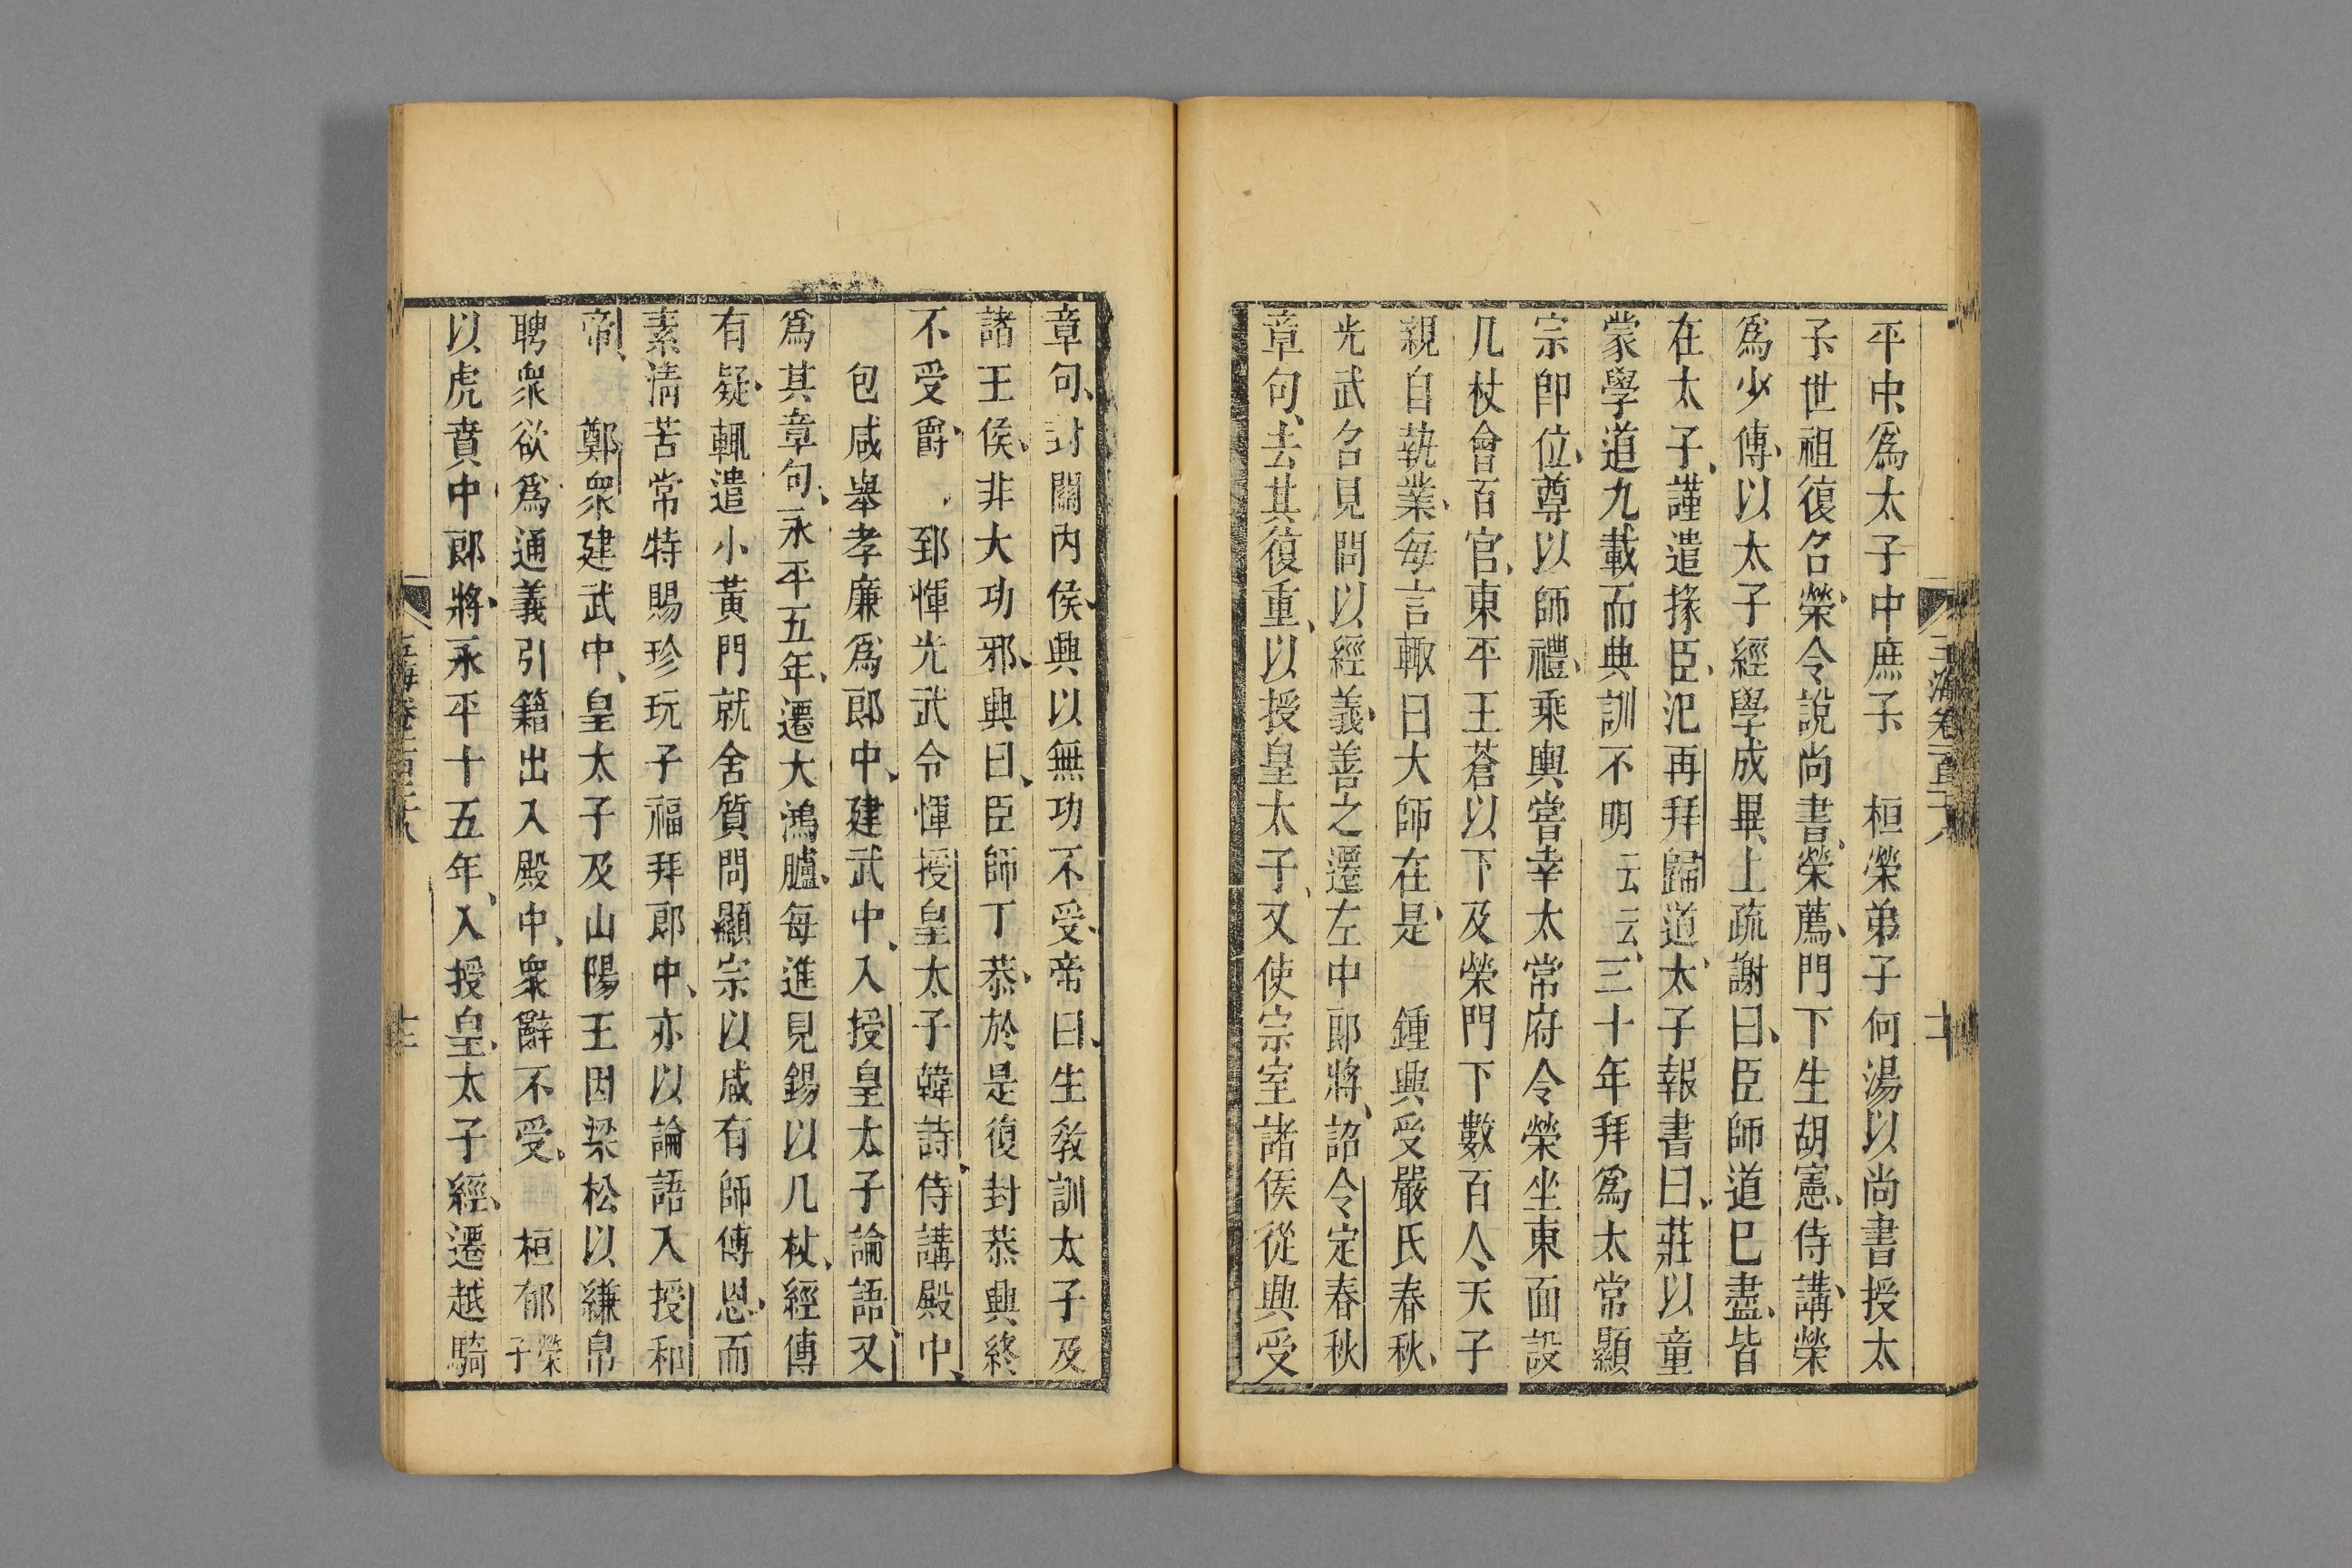 平中、爲太子中庶子　桓榮弟子何湯以尚書授太
子世祖復召榮、令說尚書、榮薦、門下生胡憲、侍講、榮
爲少傅、以太子經學成畢、上疏謝曰、臣師道已盡、皆
在太子、謹遣掾臣、汜再拜歸道、太子報書曰、莊以童
蒙學道九載而典訓不明云云、三十年拜爲太常顯
宗卽位、尊以師禮、乘輿嘗幸太常府令榮坐東面設
几杖會百官、東平王蒼以下及榮門下數百人、天子
親自執業、每言輙曰大師在、是　鍾興受嚴氏春秋、
光武名見問以經義、善之遷左中郎將、詔令定春秋
章句、去其復重、以授皇太子、又使宗室諸侯從興受
章句、封關內侯、興以無功不受、帝曰、生敎訓太子及
諸王侯、非大功邪、興曰、臣師丁恭、於是復封恭興終
不受爵、　郅惲光武令惲授皇太子韓詩、侍講殿中、
包咸舉孝廉爲郎中、建武中、入授皇太子論語、又
爲其章句、永平五年、遷大鴻臚、每進見錫以几杖、經傳
有疑、輒遣小黃門就舍質問顯宗以咸有師傅恩、而
素淸苦常特賜珍玩子福拜郎中、亦以論語入授和
帝、　鄭衆建武中、皇太子及山陽王因梁松以縑帛
聘衆欲爲通義引籍出入殿中、衆辭不受、　桓郁榮子
以虎賁中郎將、永平十五年、入授皇、太子經、遷越騎
玉海卷一百二十八